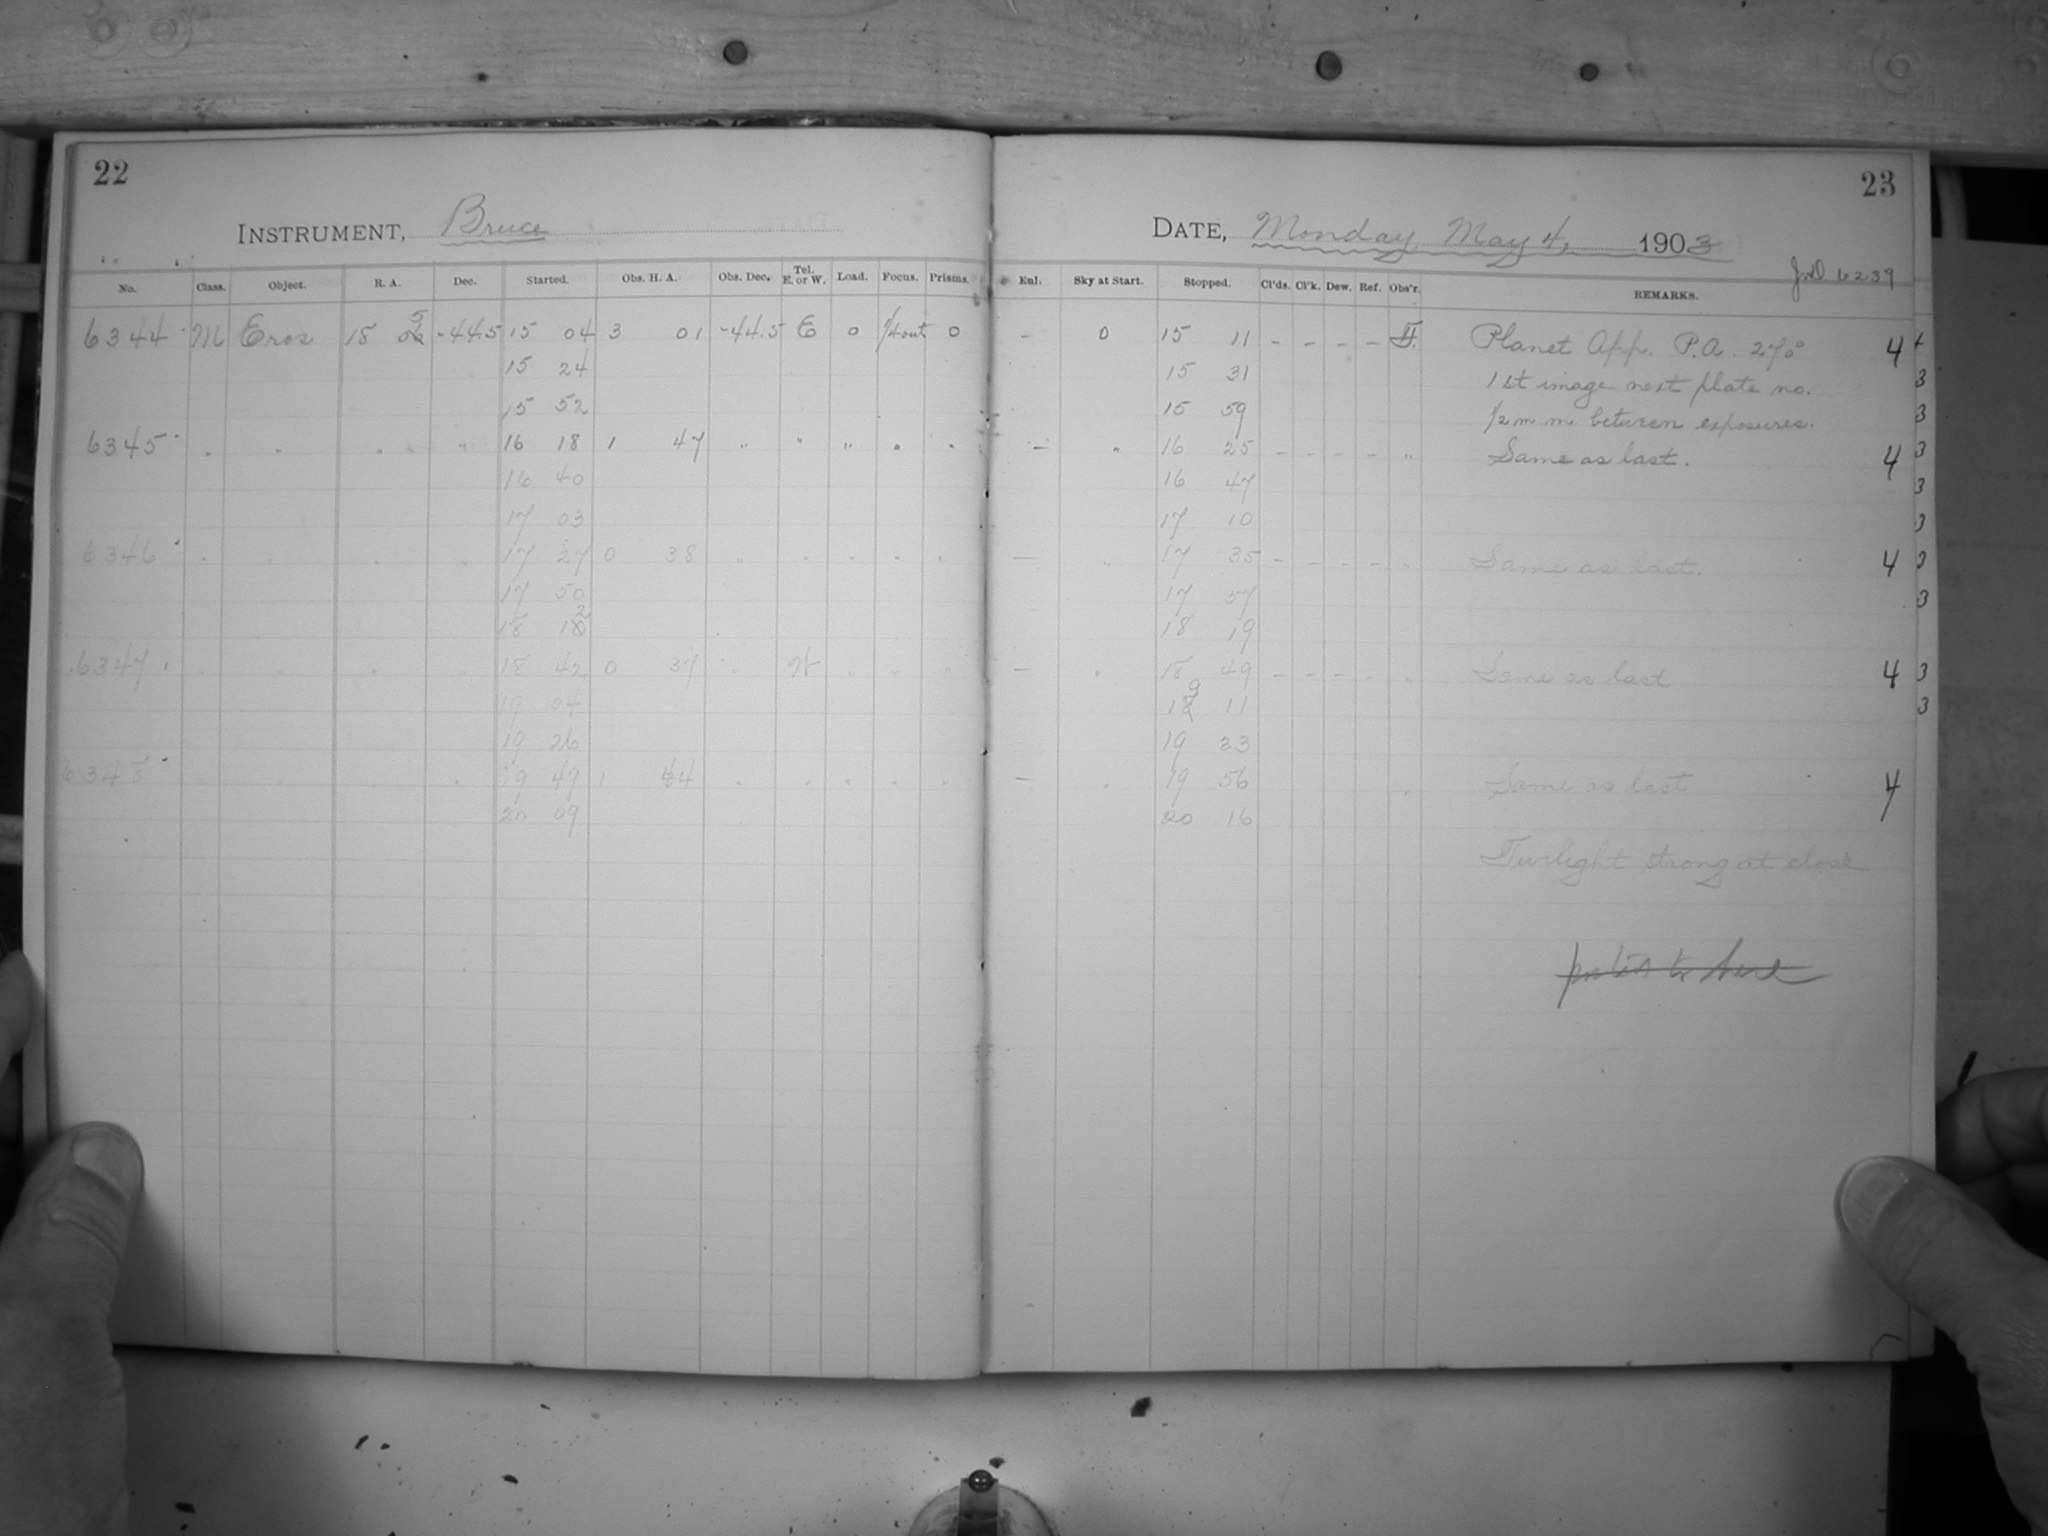 22
INSTRUMENT, Bruce
No. Class. Object. R. A. Dec. Started. Obs. H. A. Obs. Dec. Tel. E. or W. Load. Focus. Prisms.
6344 M Eros 18 5 -44.5 15 04 3 01 -44.5 E 0 1/4 out 0
15 24
15 52
6345 " " " " 16 18 1 47 " " " " "
16 40
17 03
6346 " " " " 17 27 0 38 " " " " "
17 50
18 12
6347 " " " " 18 42 0 37 " W " " "
19 04
19 26
634 " " " " 19 49 1 44 " " " " "
20 09
23
DATE, Monday, May 4, 1903
6239
Enl. Sky at Start. Stopped. Cl'ds. Cl'k. Dew. Ref. Obs'r. REMARKS.
- 0 15 11 - - - - Planet App. P.A. 270° 4
15 31 1st image next plate no. 3
15 59 1/2 m.m. between exposures. 3
- " 16 25 - - - - " Same as last. 4 3
16 47 3
17 10 3
- " 17 35 - - - - " Same as last. 4 3
17 57 3
18 19
- " 18 49 - - - - " Same as last 4 3
19 11 3
19 33
- " 19 56 " Same as last 4
20 16
Twilight strong at close